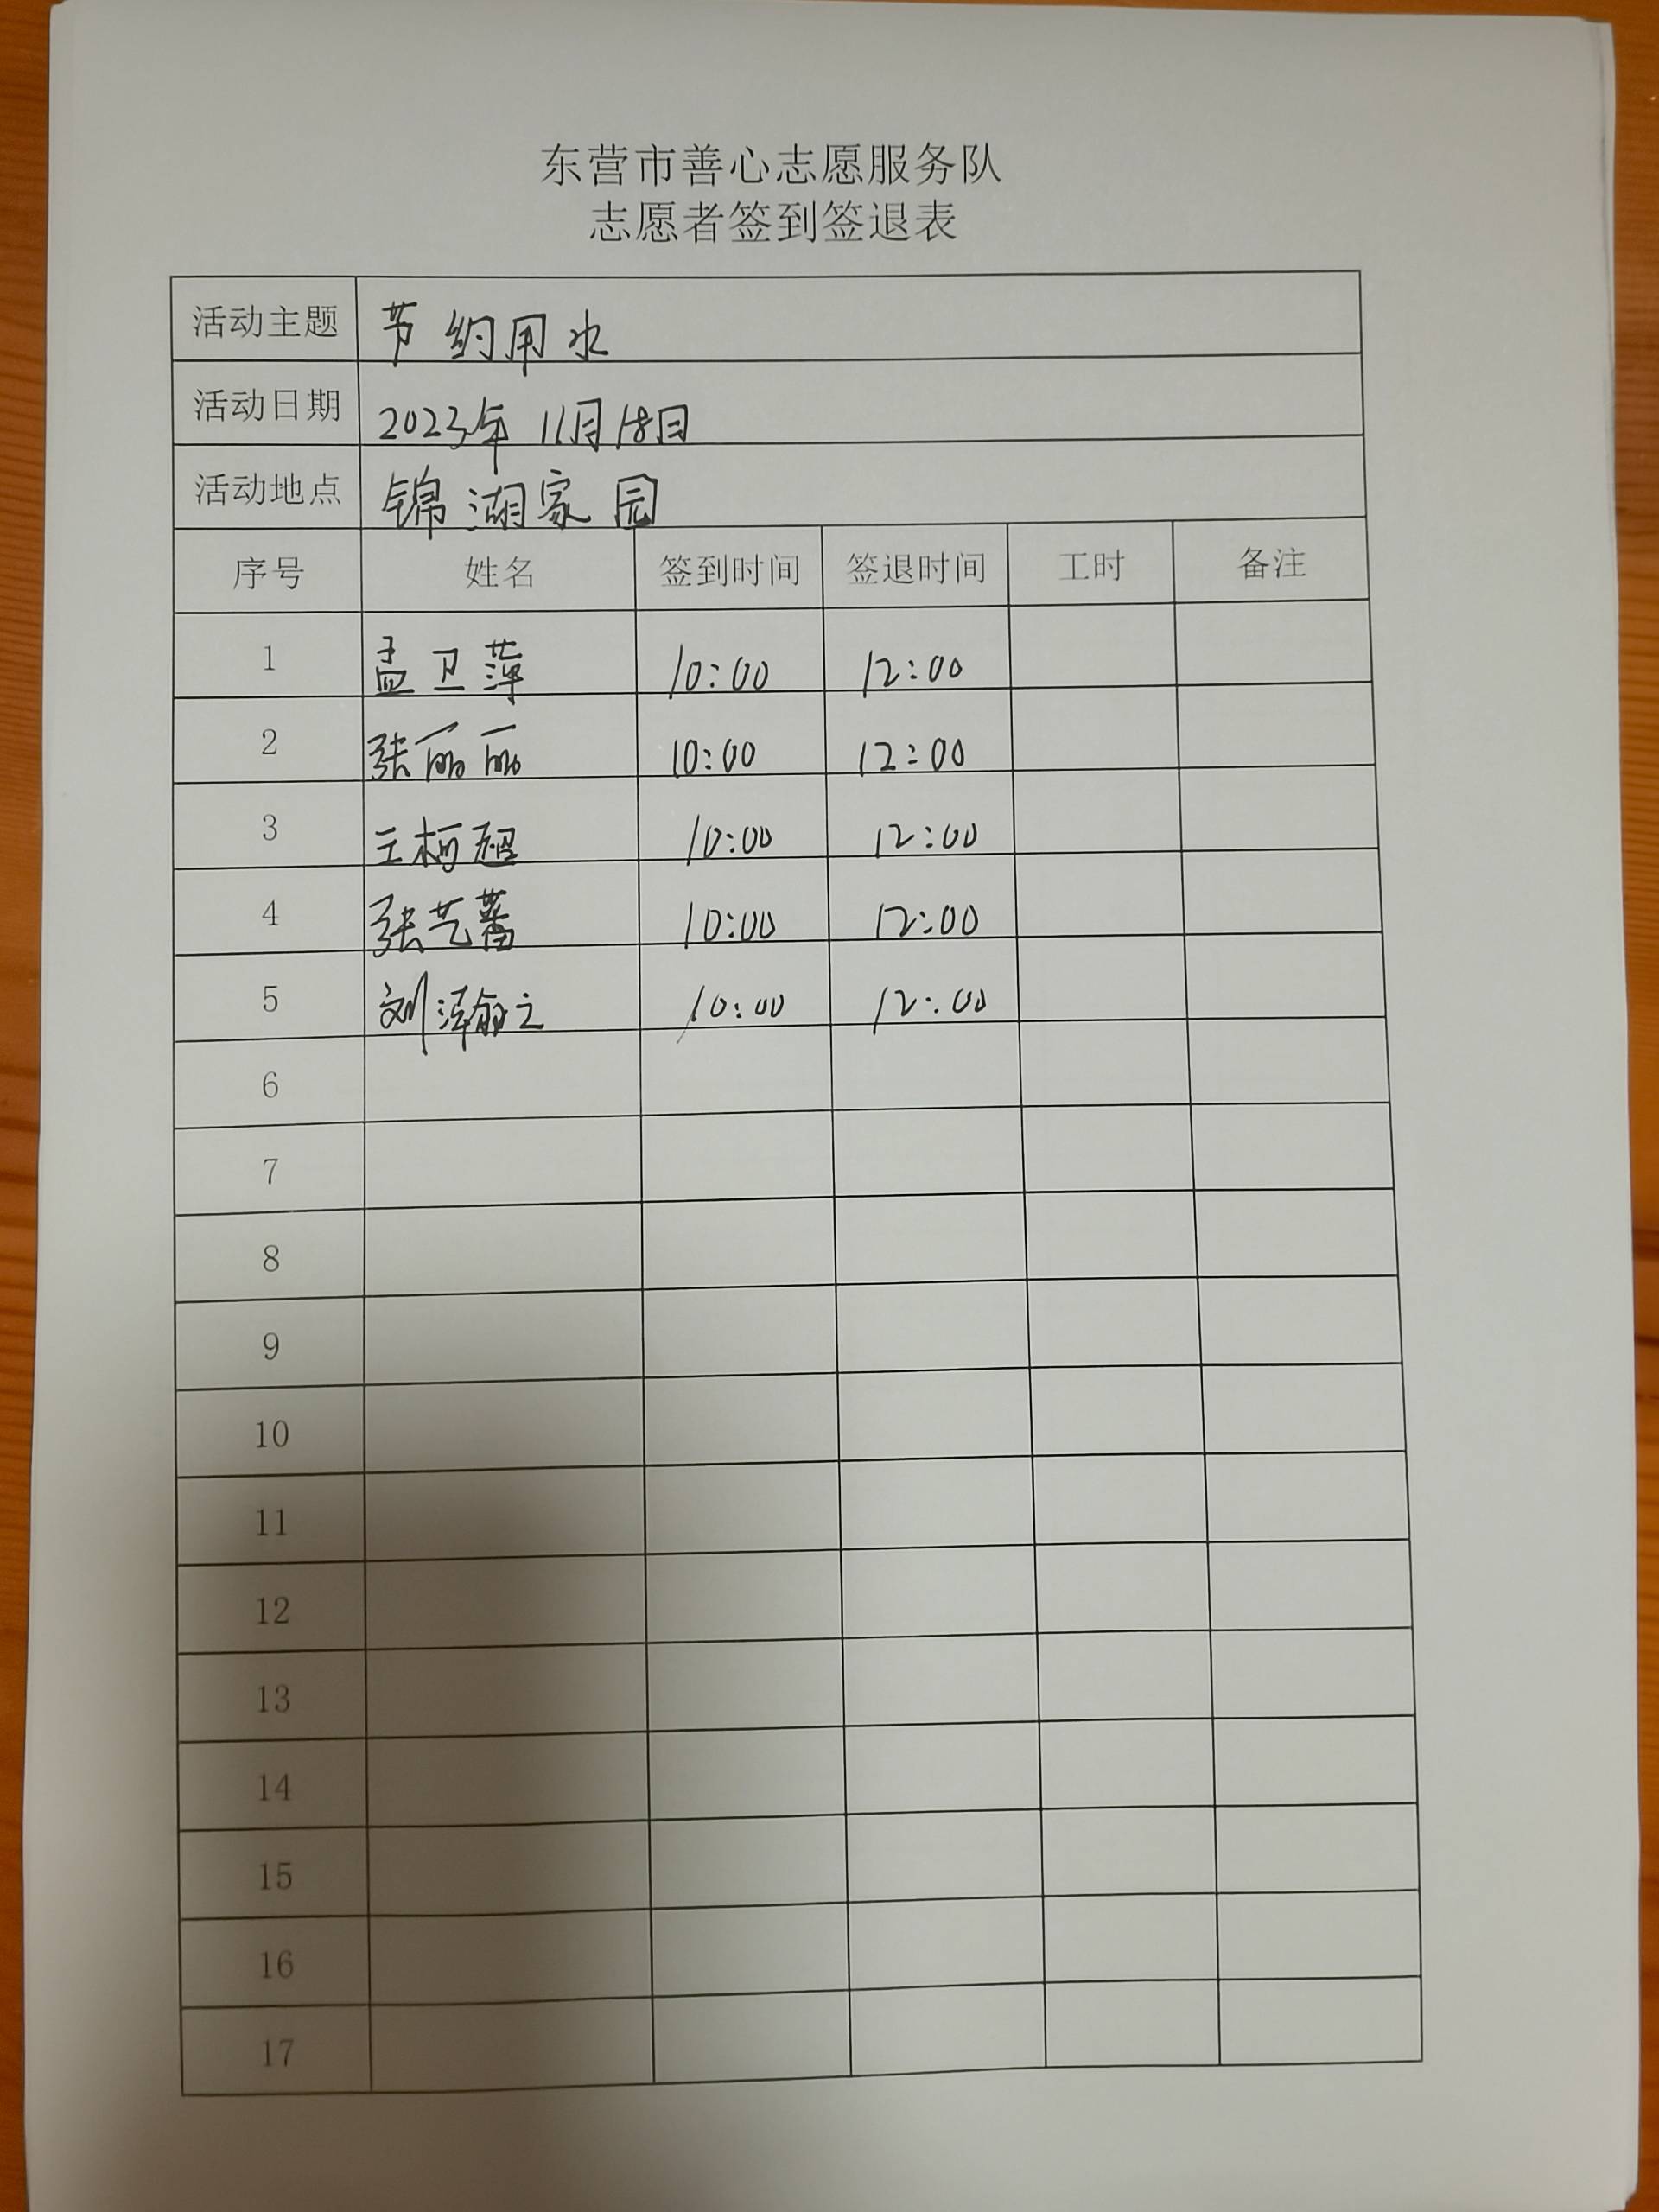 东营市善心志愿服务队
志愿者签到签退表
活动主题 节约用水
活动日期 2023年11月18日
活动地点 锦湖家园
序号 姓名 签到时间 签退时间 工时 备注
1 孟卫萍 10:00 12:00
2 张丽丽 10:00 12:00
3 王柯超 10:00 12:00
4 张艺蕾 10:00 12:00
5 刘泽翰之 10:00 12:00
6
7
8
9
10
11
12
13
14
15
16
17